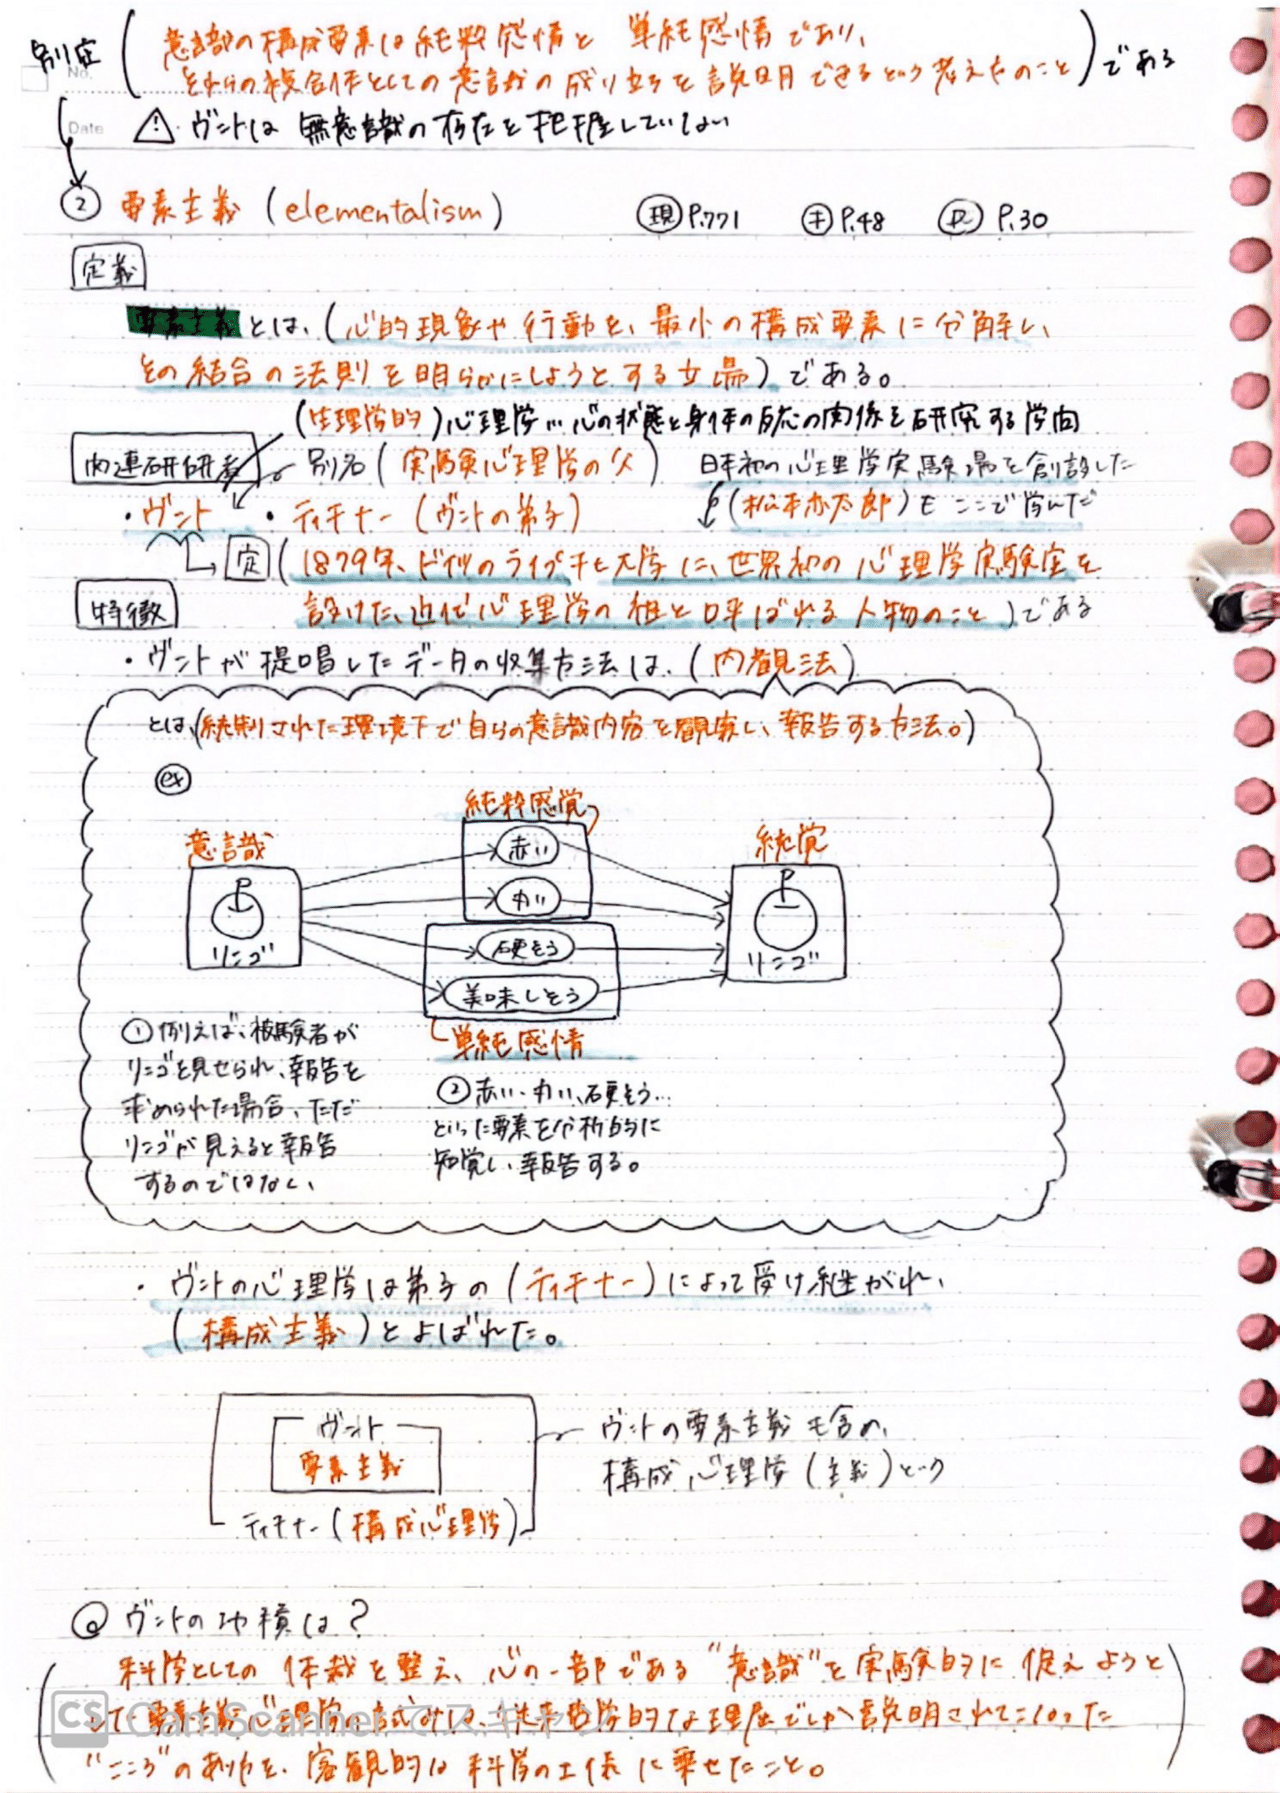 別定 (意識の構成要素は純粋感情と 単純感情であり、
それらの複合体としての意識の成り立ちを説明できるという考え方のこと) である
No.
Date
⚠ ・ヴントは 無意識の存在を把握していない
② 要素主義 (elementalism) 現 P.771 キ P.48 P.30
定義
要素主義とは、(心的現象や行動を、最小の構成要素に分解し、
その結合の法則を明らかにしようとする立場) である。
(生理学的) 心理学…心の状態と身体の反応の関係を研究する学問
関連研究者 別名 (実験心理学の父) 日本初の心理学実験場を創設した
・ヴント ・ティチナー (ヴントの弟子) (松本亦太郎) もここで学んだ
定 (1879年、ドイツのライプチヒ大学に、世界初の心理学実験室を
設けた、近代心理学の祖と呼ばれる人物のこと) である
特徴
・ヴントが提唱したデータの収集方法は、(内観法)
とは、(統制された環境下で自らの意識内容を観察し、報告する方法。)
ex
純粋感覚
意識
統覚
赤い
丸い
硬そう
美味しそう
リンゴ
リンゴ
単純感情
① 例えば、被験者が
リンゴを見せられ、報告を
求められた場合、ただ
リンゴが見えると報告
するのではなく、
② 赤い・丸い、硬そう…
といった要素を分析的に
知覚し、報告する。
・ヴントの心理学は弟子の (ティチナー) によって受け継がれ、
(構成主義) とよばれた。
ヴント
要素主義
ティチナー (構成心理学)
ヴントの要素主義も含め、
構成心理学 (主義) という
Q ヴントの功績は?
(科学としての体裁を整え、心の一部である "意識" を実験的に捉えようと
した要素主義心理学の試みは、従来哲学的な理屈でしか説明されてこなかった
"こころ" のありかを、客観的な科学の土俵に乗せたこと。)
CS CamScanner でスキャン